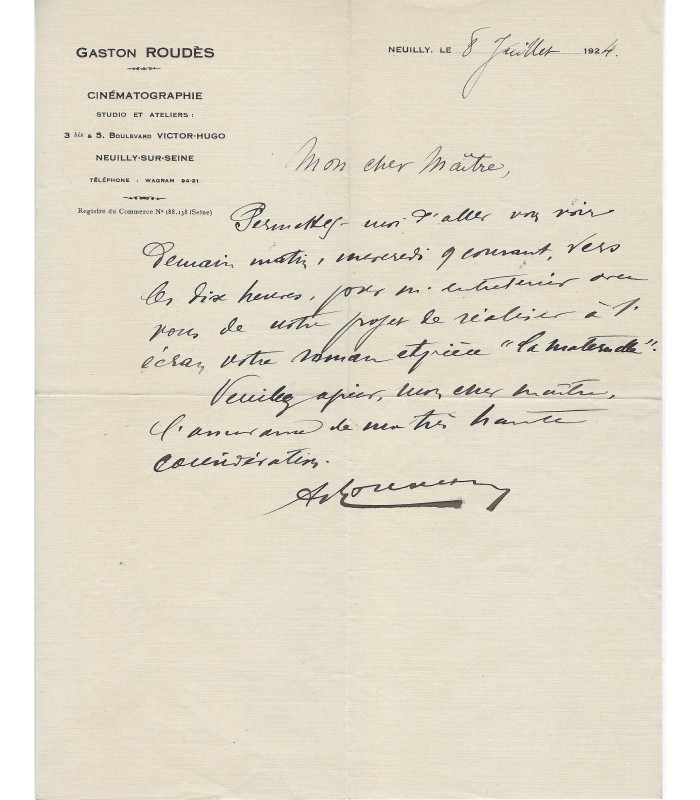 GASTON ROUDÈS
CINÉMATOGRAPHIE
STUDIO ET ATELIERS :
3 bis & 5, BOULEVARD VICTOR-HUGO
NEUILLY-SUR-SEINE
TÉLÉPHONE : WAGRAM 94-21
Registre du Commerce Nº 188.138 (Seine)
NEUILLY, LE 8 Juillet 1924.
Mon cher Maître,
Permettez-moi d'aller vous voir
demain matin, mercredi 9 courant, vers
les dix heures, pour m'entretenir avec
vous de notre projet de réaliser à l'
écran votre roman et pièce "La maternelle".
Veuillez agréer, mon cher maître,
l'assurance de ma très haute
considération.